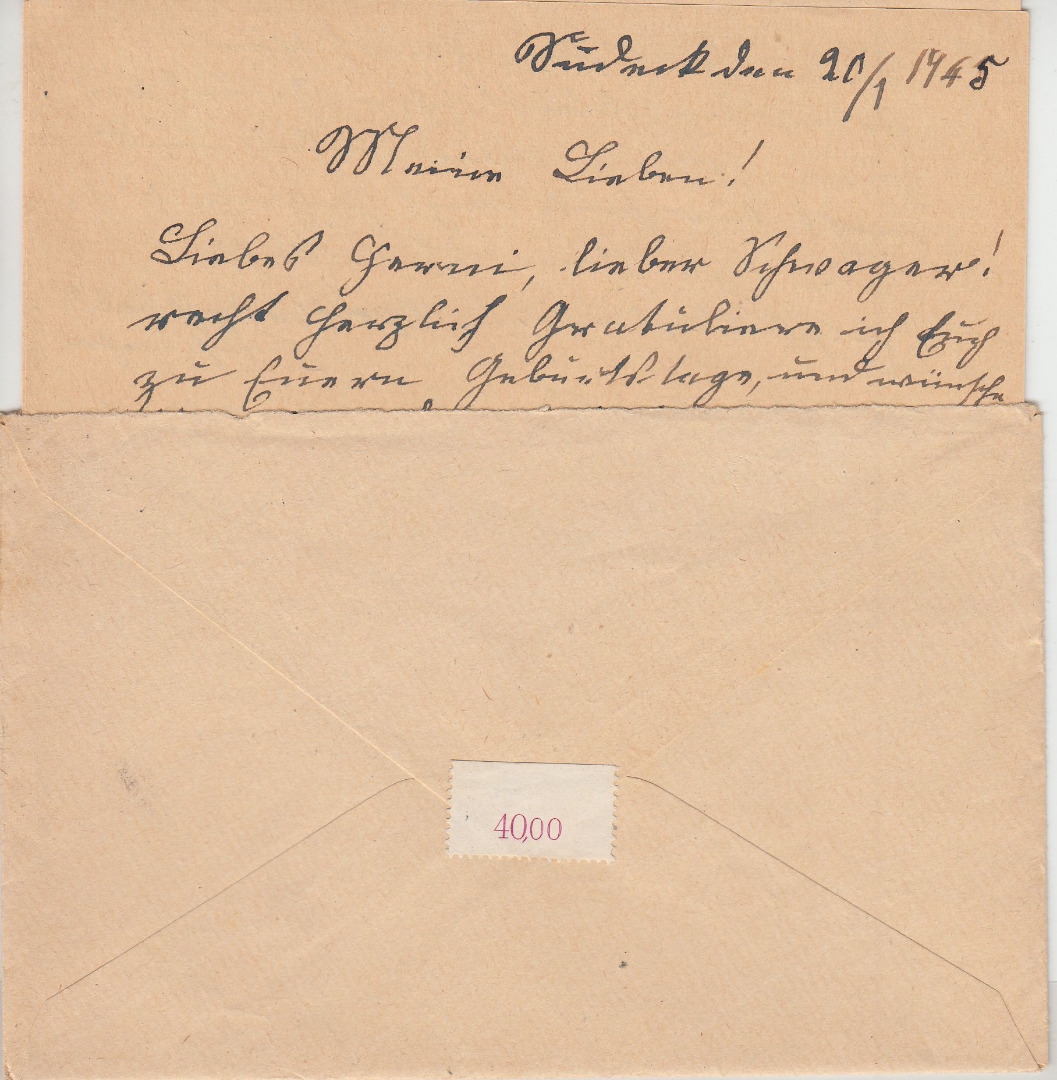 Südeck den 20/1 1945
Meine Lieben!
Liebes Herni, lieber Schwager!
recht herzlich Gratuliere ich Euch
zu Euern Geburtstage, und wünsche
40,00